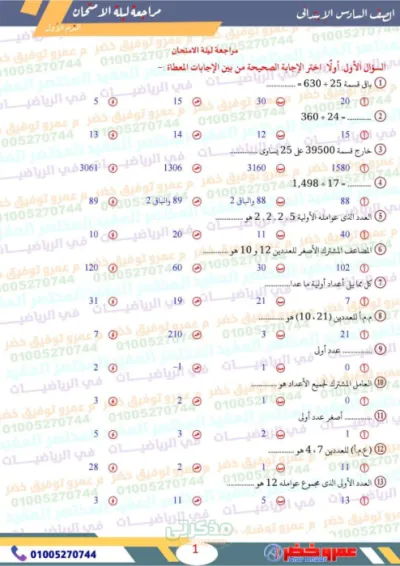 الصف السادس الابتدائى
مراجعة ليلة الامتحان
الجزء الأول
مراجعة ليلة الامتحان
السؤال الأول: أولًا: اختر الإجابة الصحيحة من بين الإجابات المعطاة :-
1 باقى قسمة 25 ÷ 630 = ............
أ 20 ب 30 ج 15 د 5
2 ............ = 24 ÷ 360
أ 15 ب 12 ج 14 د 13
3 خارج قسمة 39500 على 25 يساوى ............
أ 1580 ب 3160 ج 1306 د 3061
4 ............ = 17 ÷ 1,498
أ 88 ب 88 والباقى 2 ج 89 والباقى 2 د 89
5 العدد الذى عوامله الأولية 5 ، 2 ، 2 ، 2 هو ............
أ 40 ب 11 ج 20 د 10
6 المضاعف المشترك الأصغر للعددين 12 و 10 هو ............
أ 102 ب 30 ج 60 د 120
7 كل مما يلى أعداد أولية ما عدا............
أ 7 ب 21 ج 19 د 31
8 م.م.أ للعددين (21 ، 10) هو ............
أ 21 ب 3 ج 210 د 7
9 ............ عدد أولى
أ 0 ب 1 ج 1– د 2
10 العامل المشترك لجميع الأعداد هو ............
أ 0 ب 1 ج 2 د 3
11 ............ أصغر عدد أولى
أ 1 ب 2 ج 3 د 5
12 (ع.م.أ) للعددين 7 ، 4 هو ............
أ 11 ب 1 ج 2 د 28
13 العدد الأولى الذى مجموع عوامله 12 هو ............
أ 13 ب 5 ج 11 د 3
م عمرو توفيق خضر
01005270744
مذكرتى
عمرو خضر
1
01005270744